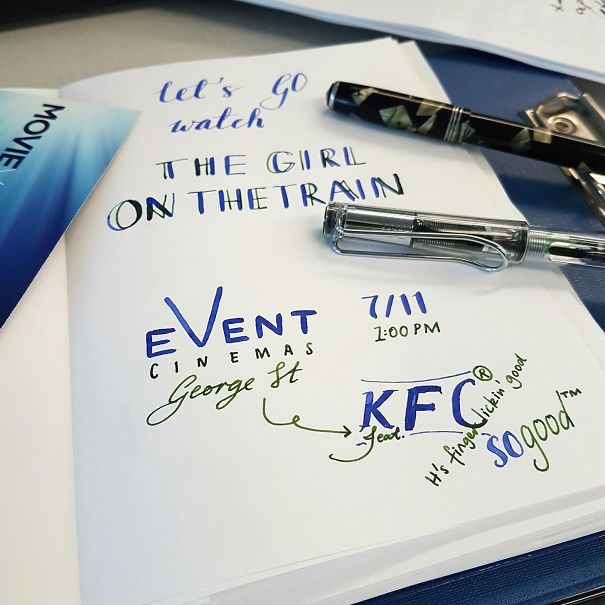 let's GO
watch
THE GIRL
ON THE TRAIN
EVENT
CINEMAS
George St
7/11
1:00 PM
KFC®
feat.
It's finger lickin' good
so good™
MOVIE